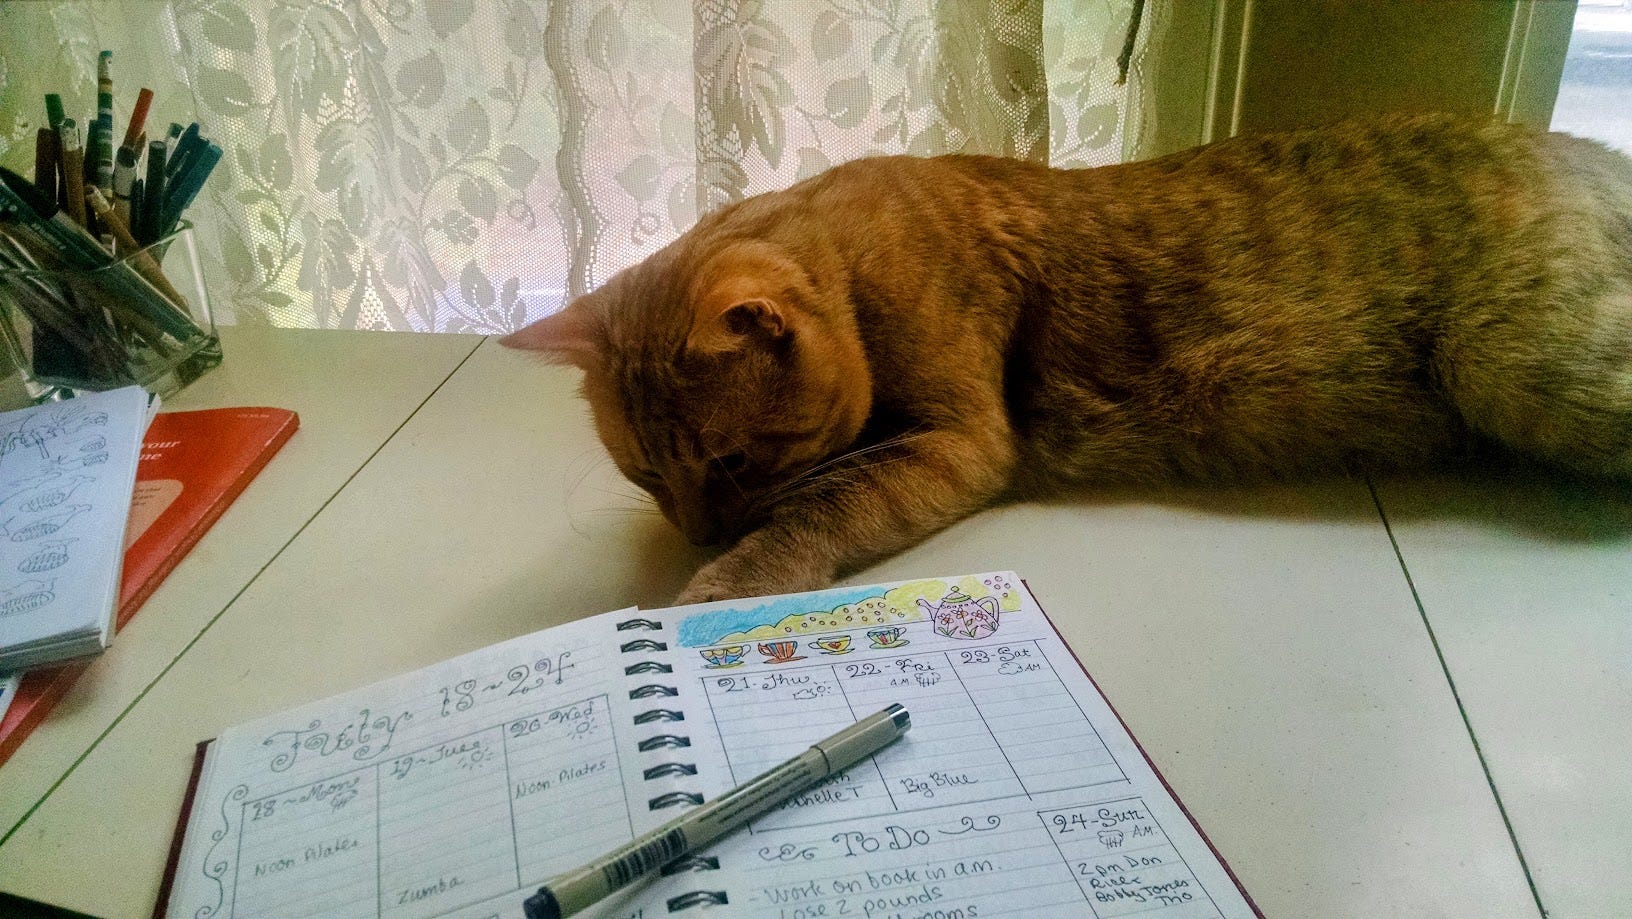 your
me
July 18~24
18~Mon
Noon Pilates
19~Tues
Zumba
20-Wed
Noon Pilates
21-Thu
22-Fri
A.M.
Big Blue
23-Sat
AM
To Do
-Work on book in a.m.
Lose 2 pounds
24-Sun
A.M.
2pm Don
Rich
Bobby Jones
Tho